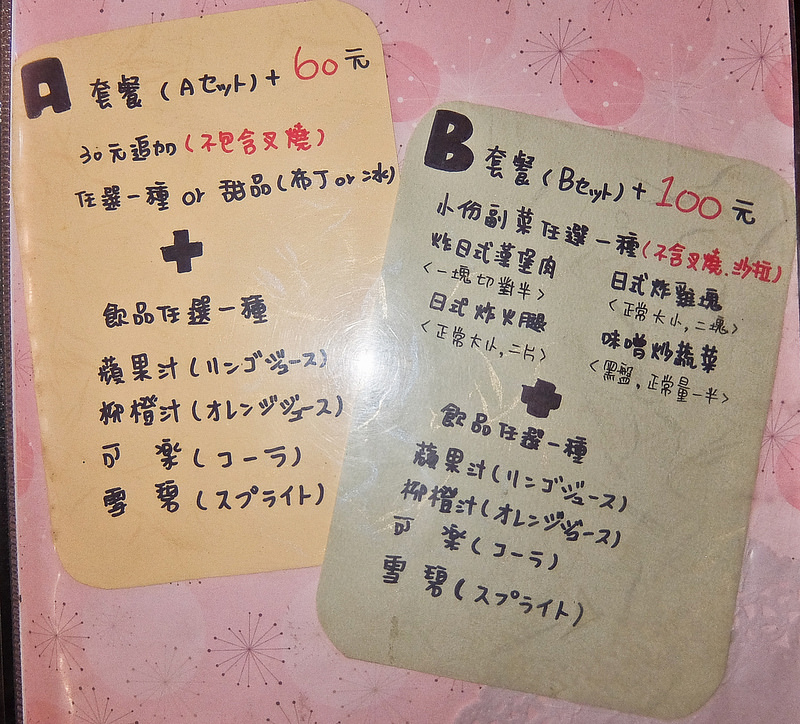 A 套餐 (Aセット) + 60元
30元追加 (不包含叉燒)
任選一種 or 甜品 (布丁 or 冰)
+
飲品任選一種
蘋果汁 (リンゴジュース)
柳橙汁 (オレンジジュース)
可樂 (コーラ)
雪碧 (スプライト)
B 套餐 (Bセット) + 100元
小份副菜任選一種 (不含叉燒、沙拉)
炸日式漢堡肉
<一塊切對半>
日式炸火腿
<正常大小,二片>
日式炸雞塊
<正常大小,二塊>
味噌炒蔬菜
<黑盤,正常量一半>
+
飲品任選一種
蘋果汁 (リンゴジュース)
柳橙汁 (オレンジジュース)
可樂 (コーラ)
雪碧 (スプライト)